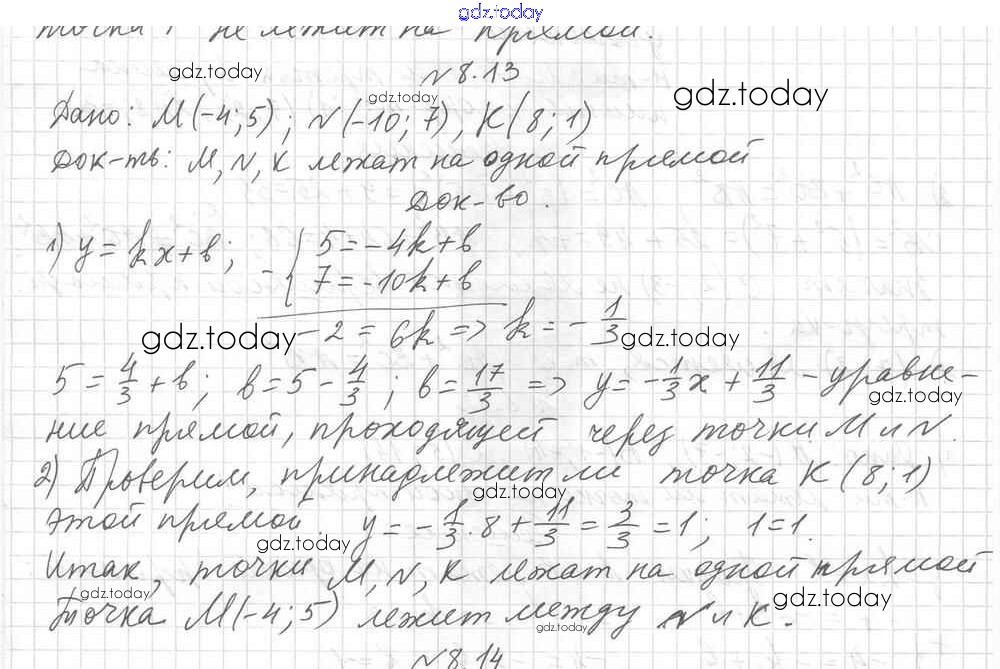 gdz.today
точка P не лежит на прямой.
N8.13
gdz.today
gdz.today
gdz.today
Дано: M(-4;5); N(-10;7), K(8;1)
Док-ть: M,N,K лежат на одной прямой
Док-во.
1) y=kx+b; -{ 5=-4k+b
7=-10k+b
-2=6k => k=-1/3
gdz.today
gdz.today
5=4/3+b; b=5-4/3; b=17/3 => y=-1/3x+11/3-уравне-
gdz.today
ние прямой, проходящей через точки M и N.
2) Проверим, принадлежит ли точка K(8;1)
gdz.today
этой прямой. y=-1/3·8+11/3=3/3=1; 1=1.
gdz.today
Итак, точки M,N,K лежат на одной прямой
gdz.today
gdz.today
Точка M(-4;5) лежит между N и K.
gdz.today
N8.14